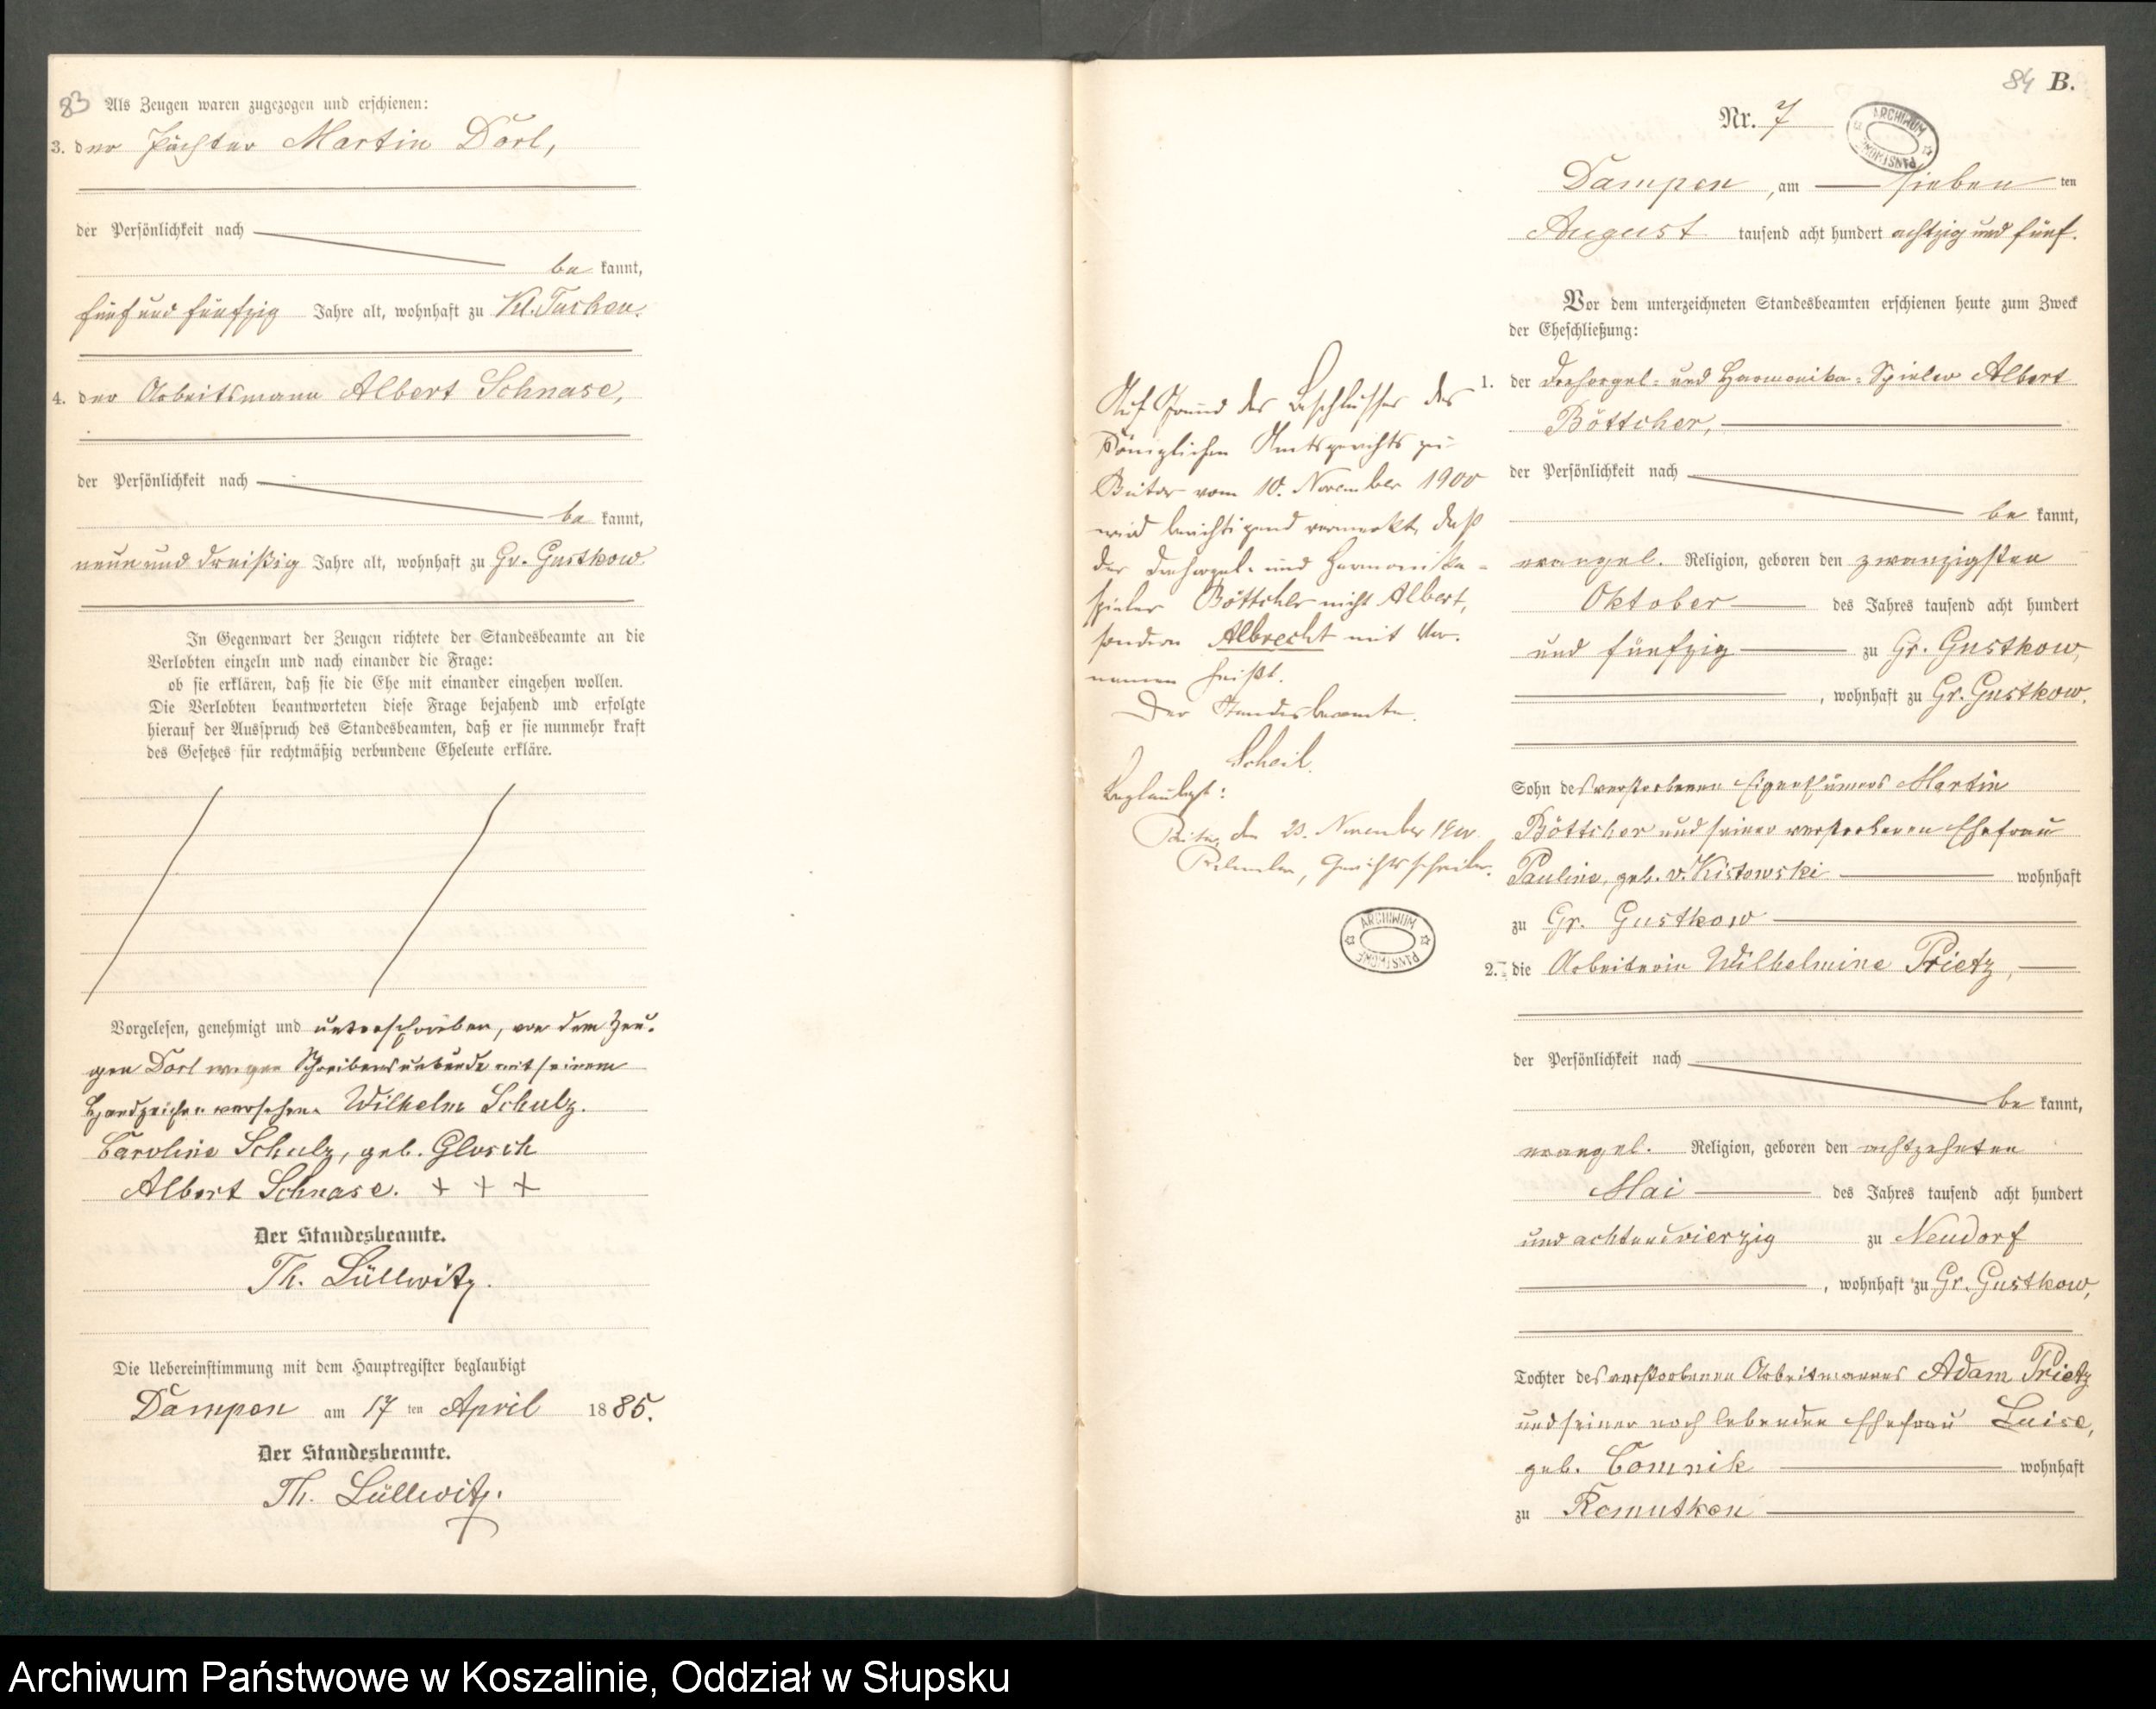 83 Als Zeugen waren zugezogen und erschienen:
3. der Pächter Martin Dorl,
der Persönlichkeit nach
be kannt,
fünf und fünfzig Jahre alt, wohnhaft zu Kl. Tuchen.
4. der Arbeitsmann Albert Schnase,
der Persönlichkeit nach
be kannt,
neun und dreißig Jahre alt, wohnhaft zu Gr. Gustkow
In Gegenwart der Zeugen richtete der Standesbeamte an die
Verlobten einzeln und nach einander die Frage:
ob sie erklären, daß sie die Ehe mit einander eingehen wollen.
Die Verlobten beantworteten diese Frage bejahend und erfolgte
hierauf der Ausspruch des Standesbeamten, daß er sie nunmehr kraft
des Gesetzes für rechtmäßig verbundene Eheleute erkläre.
Vorgelesen, genehmigt und unterschrieben, von dem Zeu-
gen Dorl wegen Schreibensunkunde mit seinem
Handzeichen versehen. Wilhelm Schulz.
Caroline Schulz, geb. Glosch
Albert Schnase. + + +
Der Standesbeamte.
Th. Lüllwitz.
Die Uebereinstimmung mit dem Hauptregister beglaubigt
Dampen am 17 ten April 1885.
Der Standesbeamte.
Th. Lüllwitz.
84 B.
Nr. 7
ARCHIWUM PAŃSTWOWE
Dampen, am sieben ten
August tausend acht hundert achtzig und fünf.
Vor dem unterzeichneten Standesbeamten erschienen heute zum Zweck
der Eheschließung:
1. der Drehorgel- und Harmonika-Spieler Albert
Böttcher,
der Persönlichkeit nach
be kannt,
evangel. Religion, geboren den zwanzigsten
Oktober des Jahres tausend acht hundert
und fünfzig zu Gr. Gustkow,
, wohnhaft zu Gr. Gustkow.
Sohn des verstorbenen Eigenthümers Martin
Böttcher und seiner verstorbenen Ehefrau
Pauline, geb. v. Kistowski wohnhaft
zu Gr. Gustkow
2. die Arbeiterin Wilhelmine Prietz,
der Persönlichkeit nach
be kannt,
evangel. Religion, geboren den achtzehnten
Mai des Jahres tausend acht hundert
und achtundvierzig zu Neudorf
, wohnhaft zu Gr. Gustkow,
Tochter des verstorbenen Arbeitmannes Adam Prietz
und seiner noch lebenden Ehefrau Luise,
geb. Comnik wohnhaft
zu Romutken
Auf Grund des Beschlusses des
Königlichen Amtsgerichts zu
Bütow vom 10. November 1900
wird berichtigend vermerkt, daß
der Drehorgel- und Harmonika-
spieler Böttcher nicht Albert,
sondern Albrecht mit Vor-
namen heißt.
Der Standesbeamte.
Scheil.
Beglaubigt:
Bütow, den 23. November 1900.
Gerichtsschreiber.
ARCHIWUM PAŃSTWOWE
Archiwum Państwowe w Koszalinie, Oddział w Słupsku